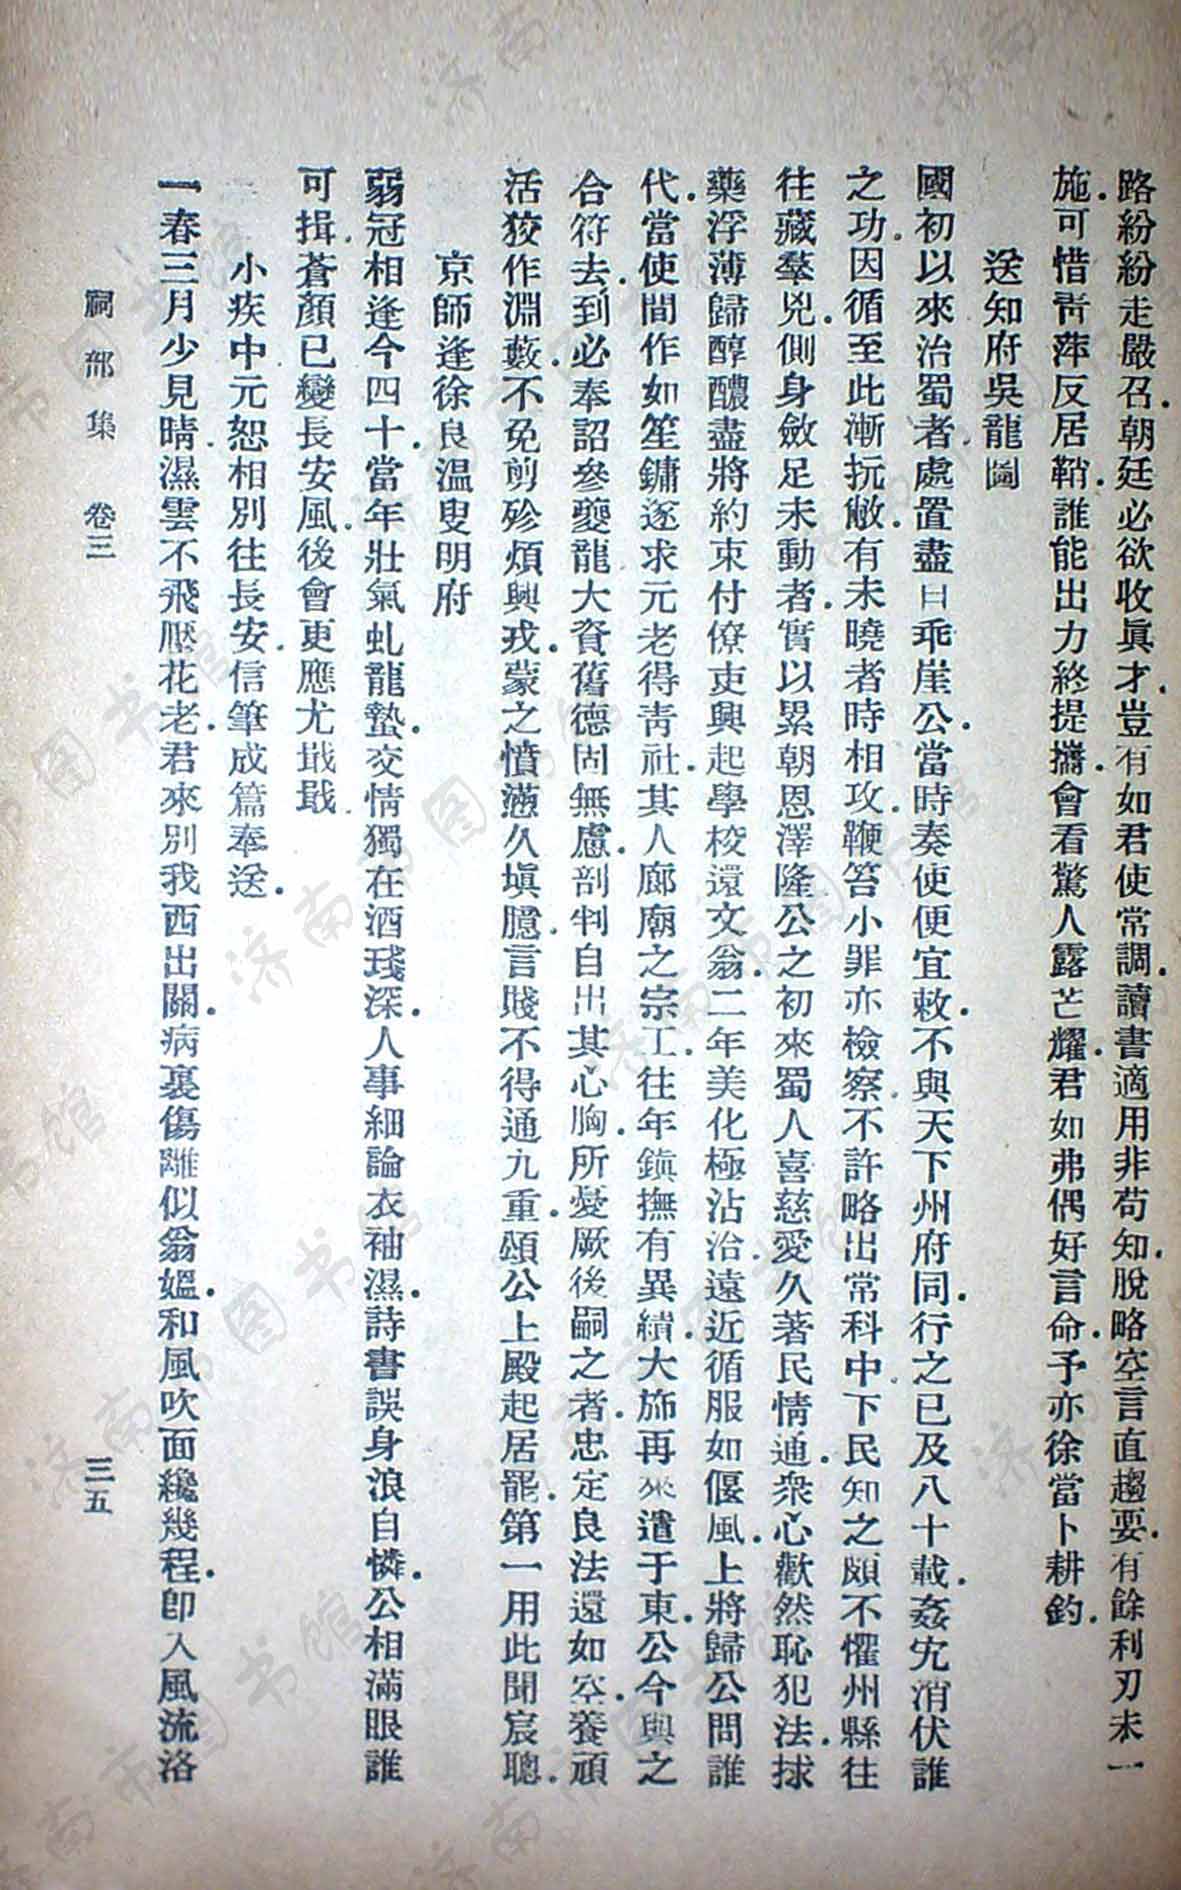 路紛紛走嚴召朝廷必欲收眞才豈有如君使常調讀書適用非苟知脫略空言直趨要有餘利刃未一
施可惜靑萍反居鞘誰能出力終提攜會看驚人露芒耀君如弗偶好言命予亦徐當卜耕釣
送知府吳龍圖
國初以來治蜀者處置盡曰乖崖公當時奏使便宜敕不與天下州府同行之已及八十載姦宄消伏誰
之功因循至此漸抗敝有未曉者時相攻鞭笞小罪亦檢察不許略出常科中下民知之頗不懼州縣往
往藏羣兇側身斂足未動者實以累朝恩澤隆公之初來蜀人喜慈愛久著民情通衆心歡然恥犯法捄
藥浮薄歸醇醲盡將約束付僚吏興起學校還文翁二年美化極沾洽遠近循服如偃風上將歸公問誰
代當使間作如笙鏞遂求元老得靑社其人廊廟之宗工往年鎭撫有異績大旆再來遣于東公今與之
合符去到必奉詔參夔龍大資舊德固無慮剖判自出其心胸所憂厥後嗣之者忠定良法還如空養頑
活狡作淵藪不免剪殄煩興戎蒙之憤懣久塡臆言賤不得通九重願公上殿起居罷第一用此聞宸聰
京師逢徐良溫叟明府
弱冠相逢今四十當年壯氣虬龍蟄交情獨在酒琖深人事細論衣袖濕詩書誤身浪自憐公相滿眼誰
可揖蒼顏已變長安風後會更應尤戢戢
小疾中元恕相別往長安信筆成篇奉送
一春三月少見晴濕雲不飛壓花老君來別我西出關病裏傷離似翁媼和風吹面纔幾程卽入風流洛
祠部集 卷三
三五
济南市图书馆